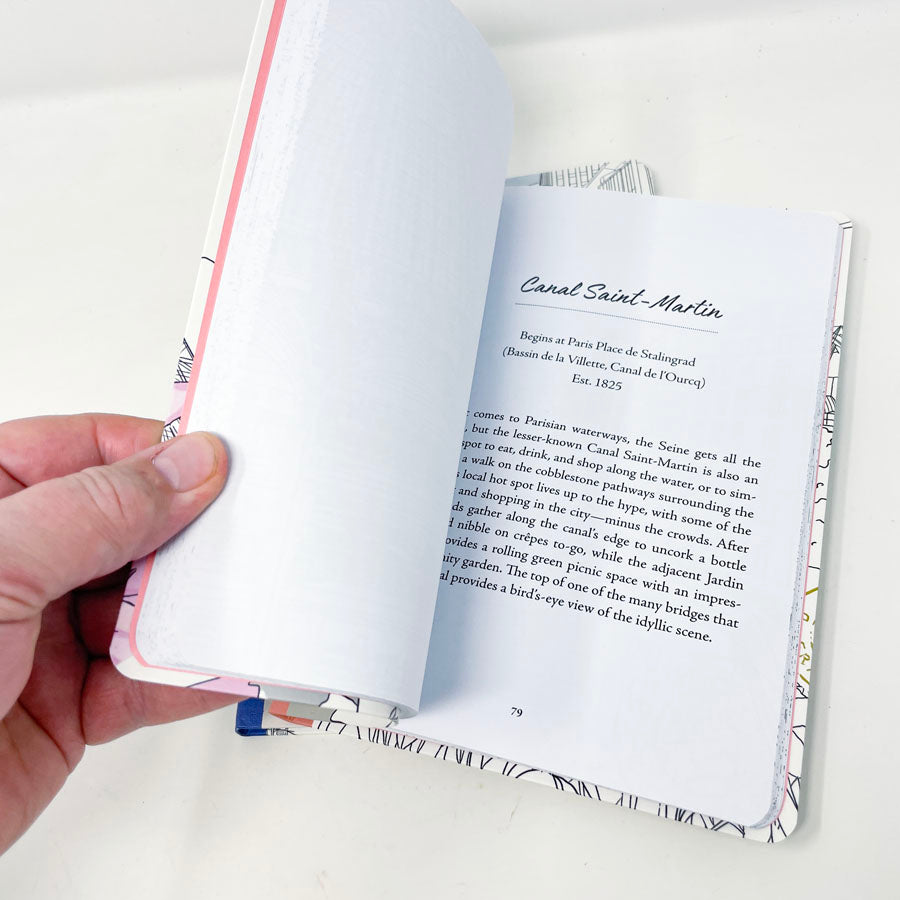 Canal Saint-Martin
Begins at Paris Place de Stalingrad
(Bassin de la Villette, Canal de l'Ourcq)
Est. 1825
comes to Parisian waterways, the Seine gets all the
, but the lesser-known Canal Saint-Martin is also an
spot to eat, drink, and shop along the water, or to sim-
a walk on the cobblestone pathways surrounding the
local hot spot lives up to the hype, with some of the
and shopping in the city—minus the crowds. After
gather along the canal's edge to uncork a bottle
nibble on crêpes to-go, while the adjacent Jardin
a rolling green picnic space with an impres-
garden. The top of one of the many bridges that
provides a bird's-eye view of the idyllic scene.
79